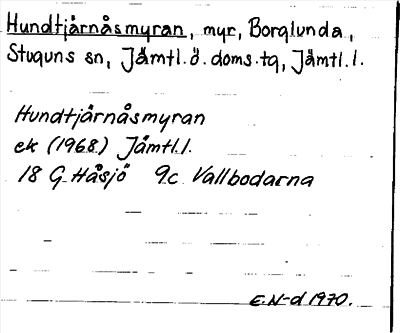 Hundtjärnåsmyran, myr, Borglunda,
Stuguns sn, Jämtl.ö.doms.tg, Jämtl.l.
Hundtjärnåsmyran
ek (1968) Jämtl.l.
18 G Håsjö 9c Vallbodarna
E.N-d 1970.